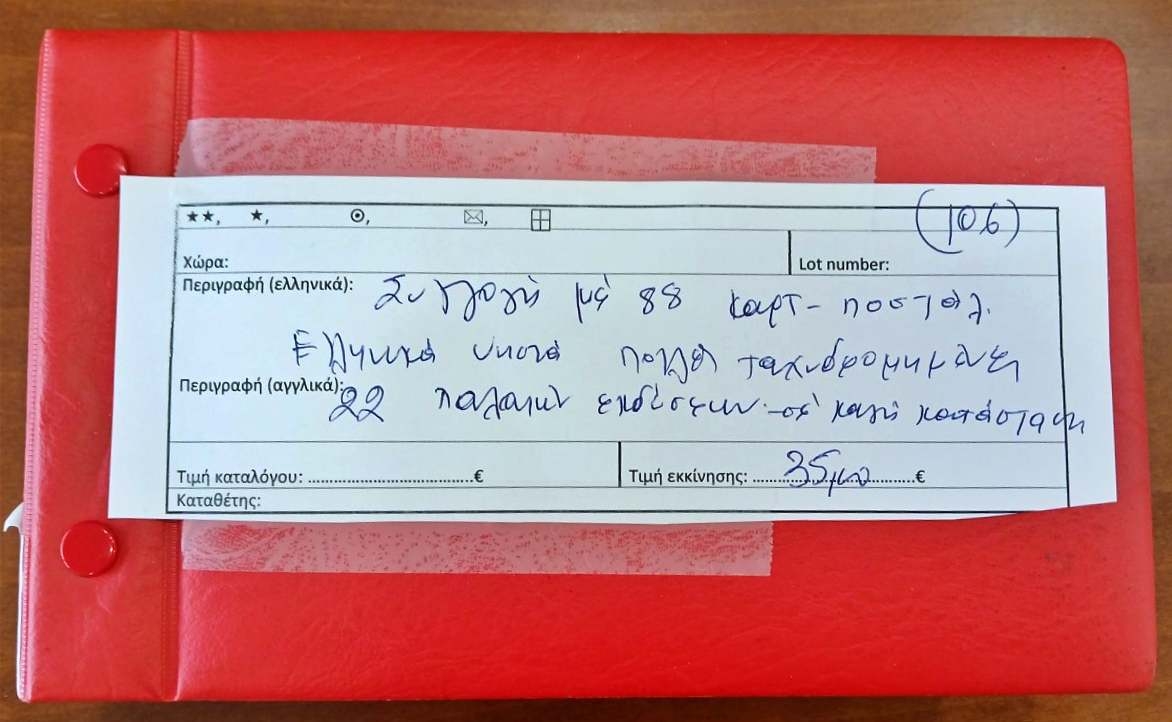 ★★, ★, ⊙, ✉, ⊞ (106)
Χώρα: Lot number:
Περιγραφή (ελληνικά): Συλλογή μέ 88 καρτ-ποστάλ.
Ελληνικά νησιά πολλά ταχυδρομημένες
Περιγραφή (αγγλικά): 22 παλαιών εκδόσεων.-σέ καλή κατάσταση
Τιμή καταλόγου: ......................................€ Τιμή εκκίνησης: ......35.........€
Καταθέτης: